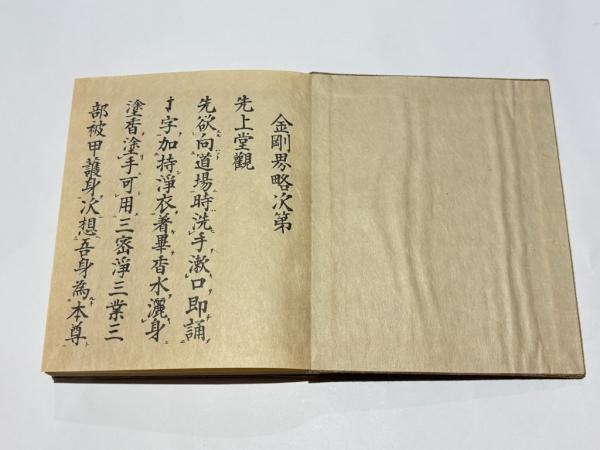 金剛界略次第
先上堂觀
先欲向道場時洗手漱口即誦
字加持淨衣著畢香水灑身
塗香塗手可用三密淨三業三
部被甲護身次想吾身為本尊